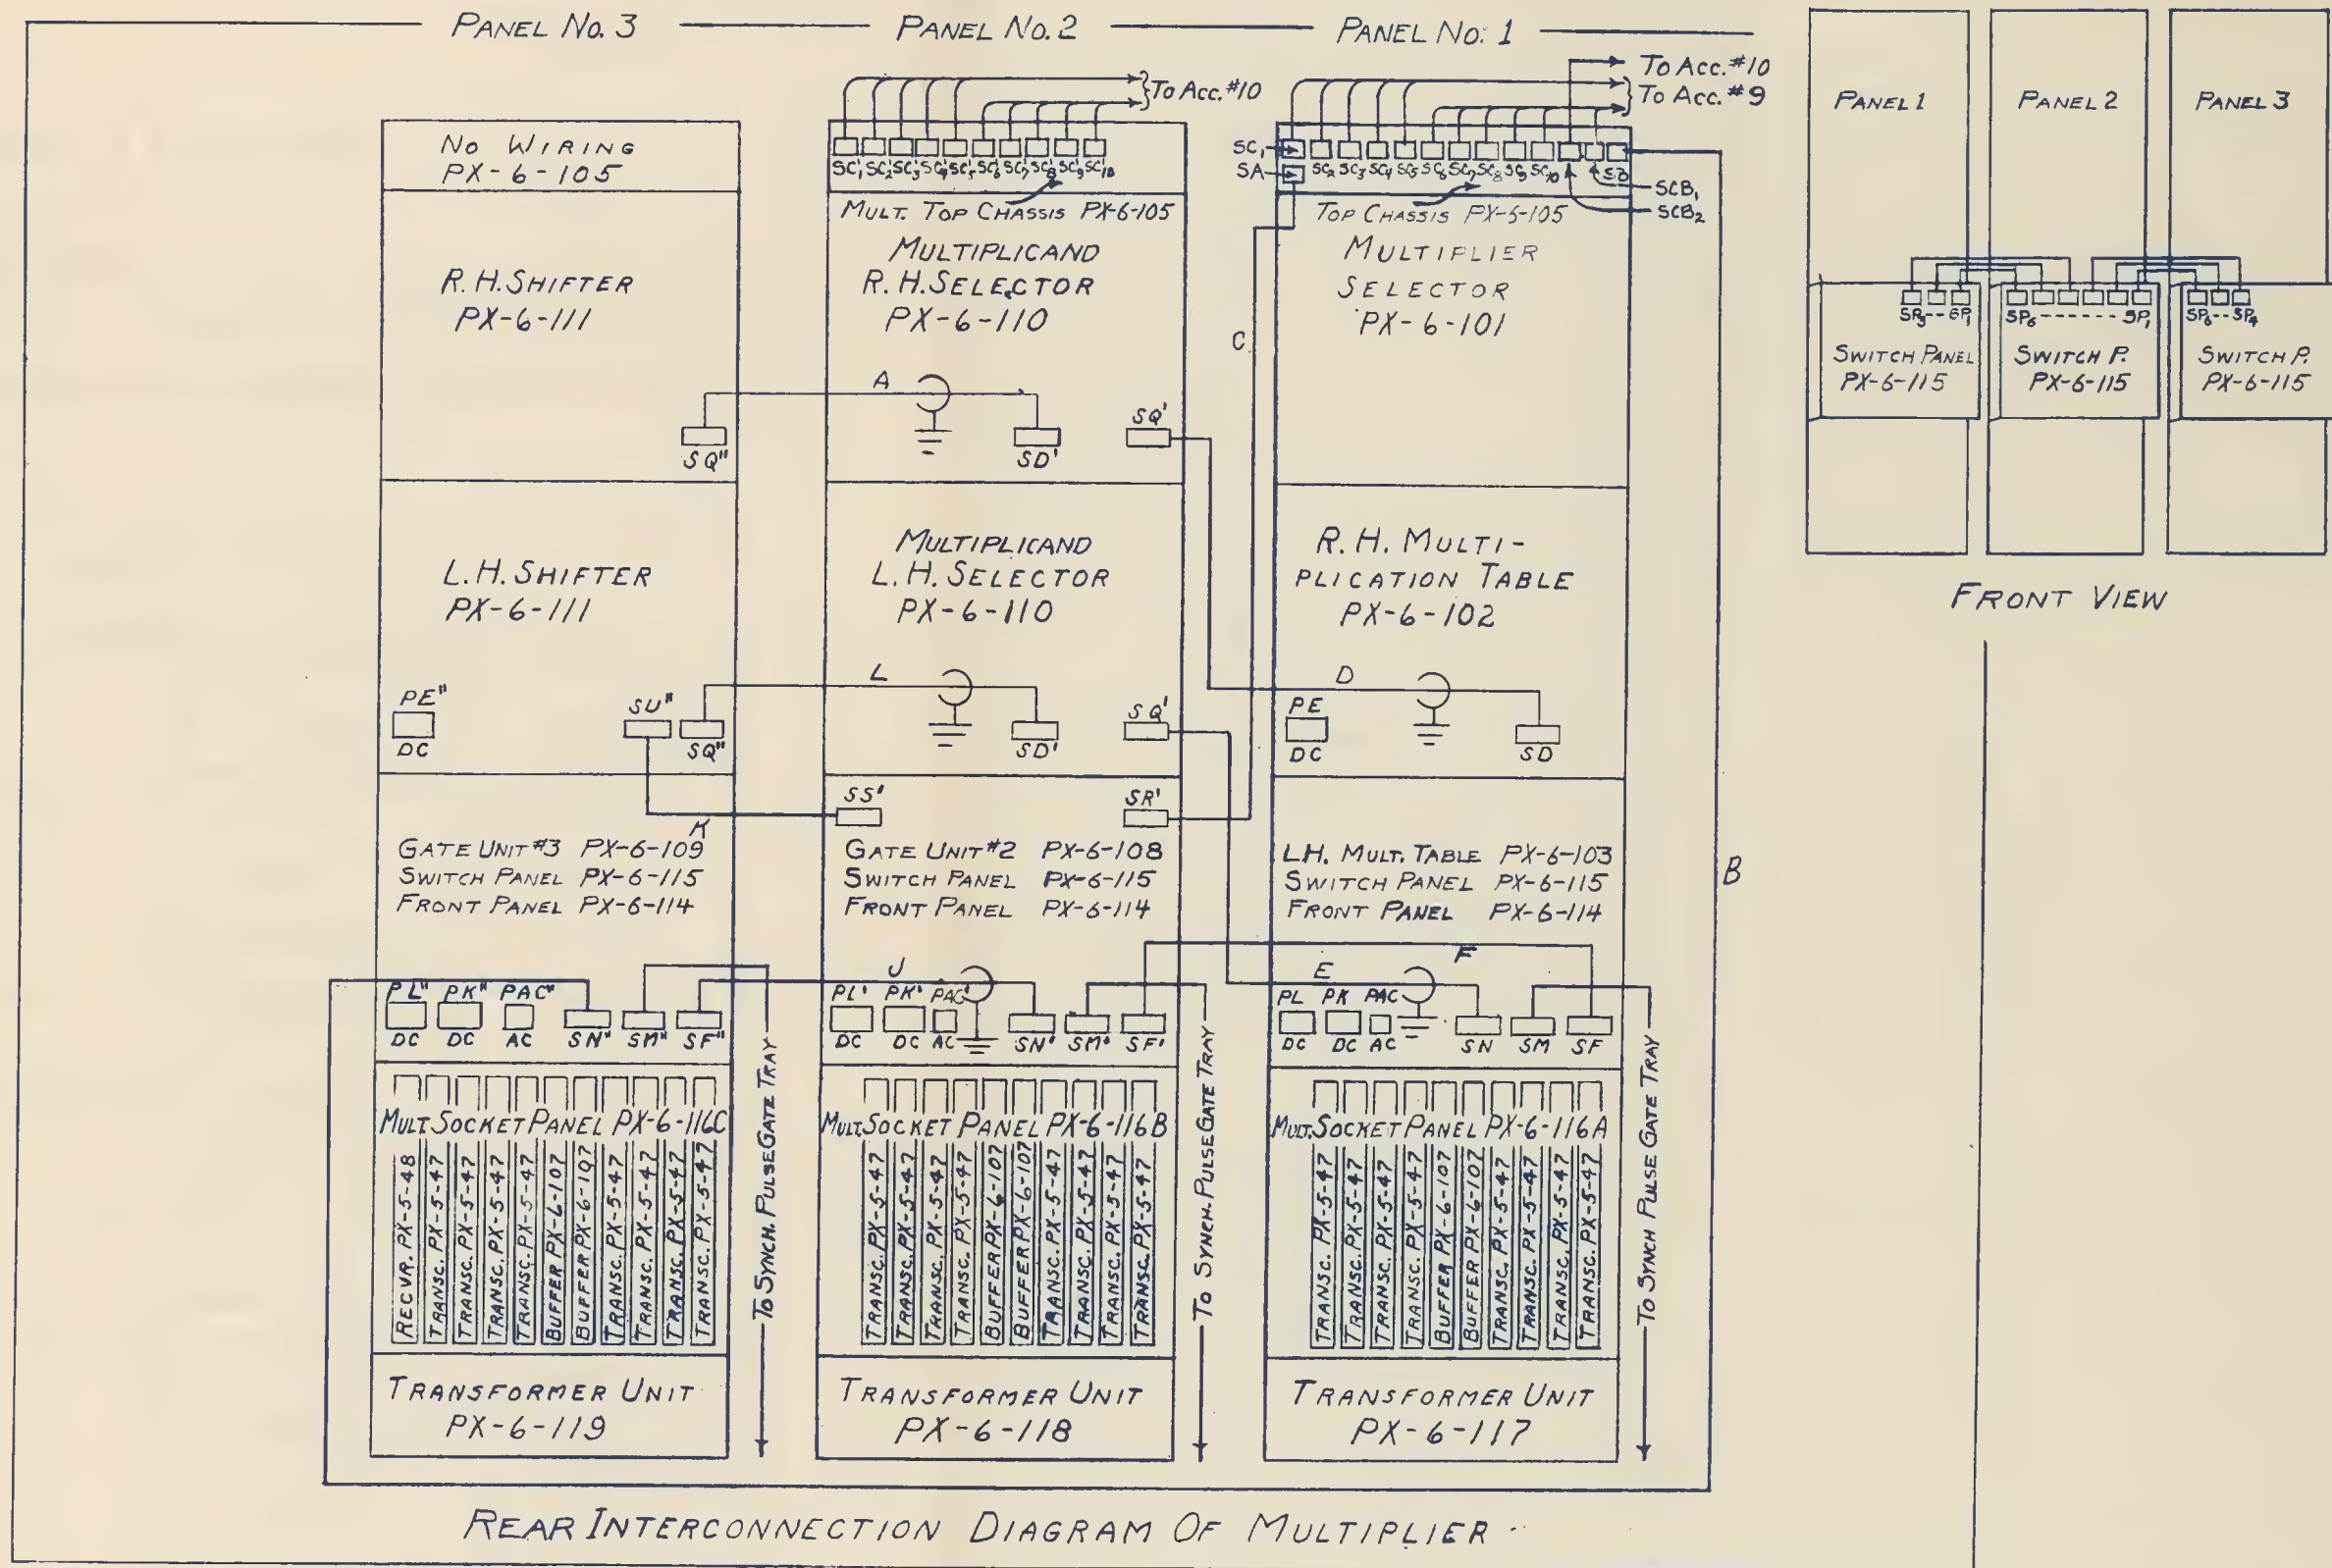 PANEL No. 3
PANEL No. 2
PANEL No. 1
NO WIRING
PX-6-105
R.H. SHIFTER
PX-6-111
SQ"
L.H. SHIFTER
PX-6-111
PE"
DC
SU"
SQ"
K
GATE UNIT #3 PX-6-109
SWITCH PANEL PX-6-115
FRONT PANEL PX-6-114
PL" PK" PAC"
DC DC AC SN" SM" SF"
MULT. SOCKET PANEL PX-6-116C
RECVR. PX-5-48
TRANSC. PX-5-47
TRANSC. PX-5-47
TRANSC. PX-5-47
TRANSC. PX-5-47
BUFFER PX-6-107
BUFFER PX-6-107
TRANSC. PX-5-47
TRANSC. PX-5-47
TRANSC. PX-5-47
TRANSC. PX-5-47
TRANSFORMER UNIT
PX-6-119
TO SYNCH. PULSE GATE TRAY
To Acc. #10
SC'1 SC'2 SC'3 SC'4 SC'5 SC'6 SC'7 SC'8 SC'9 SC'10
MULT. TOP CHASSIS PX-6-105
MULTIPLICAND
R.H. SELECTOR
PX-6-110
A
SD'
SQ'
MULTIPLICAND
L.H. SELECTOR
PX-6-110
L
SD'
SQ'
SS'
SR'
GATE UNIT #2 PX-6-108
SWITCH PANEL PX-6-115
FRONT PANEL PX-6-114
J
PL' PK' PAC'
DC DC AC SN' SM' SF'
MULT. SOCKET PANEL PX-6-116B
TRANSC. PX-5-47
TRANSC. PX-5-47
TRANSC. PX-5-47
TRANSC. PX-5-47
BUFFER PX-6-107
BUFFER PX-6-107
TRANSC. PX-5-47
TRANSC. PX-5-47
TRANSC. PX-5-47
TRANSC. PX-5-47
TRANSFORMER UNIT
PX-6-118
TO SYNCH. PULSE GATE TRAY
To Acc. #10
To Acc. #9
SC1
SA
SC2 SC3 SC4 SC5 SC6 SC7 SC8 SC9 SC10 SB
SCB1
SCB2
TOP CHASSIS PX-6-105
MULTIPLIER
SELECTOR
PX-6-101
C
R.H. MULTI-
PLICATION TABLE
PX-6-102
D
PE
DC
SD
L.H. MULT. TABLE PX-6-103
SWITCH PANEL PX-6-115
FRONT PANEL PX-6-114
B
F
E
PL PK PAC
DC DC AC SN SM SF
MULT. SOCKET PANEL PX-6-116A
TRANSC. PX-5-47
TRANSC. PX-5-47
TRANSC. PX-5-47
TRANSC. PX-5-47
BUFFER PX-6-107
BUFFER PX-6-107
TRANSC. PX-5-47
TRANSC. PX-5-47
TRANSC. PX-5-47
TRANSC. PX-5-47
TRANSFORMER UNIT
PX-6-117
TO SYNCH PULSE GATE TRAY
REAR INTERCONNECTION DIAGRAM OF MULTIPLIER
PANEL 1
PANEL 2
PANEL 3
SP3--SP1
SP6------SP1
SP6--SP4
SWITCH PANEL
PX-6-115
SWITCH P.
PX-6-115
SWITCH P.
PX-6-115
FRONT VIEW